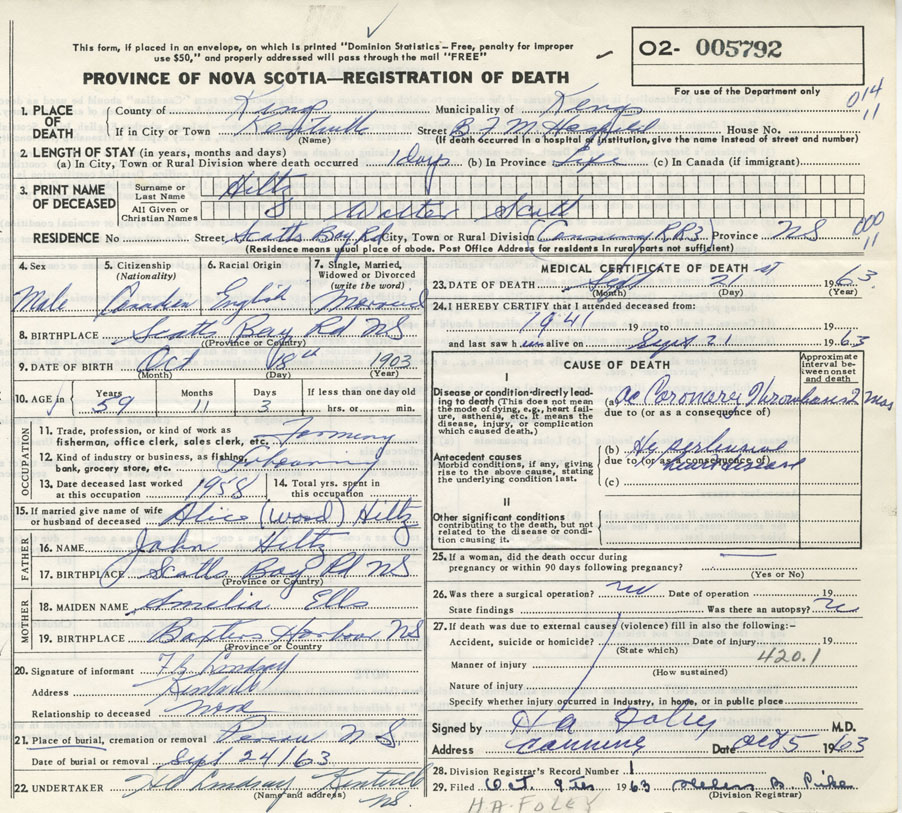 This form, if placed in an envelope, on which is printed "Dominion Statistics – Free, penalty for improper
use $50," and properly addressed will pass through the mail "FREE"
O2- 005792
PROVINCE OF NOVA SCOTIA—REGISTRATION OF DEATH
For use of the Department only
014
11
1. PLACE OF DEATH
County of Kings Municipality of Kings
If in City or Town Kentville Street B F M Hospital House No.
(Name) (If death occurred in a hospital or institution, give the name instead of street and number)
2. LENGTH OF STAY (in years, months and days)
(a) In City, Town or Rural Division where death occurred 1 day (b) In Province Life (c) In Canada (if immigrant)
3. PRINT NAME OF DECEASED
Surname or Last Name Hiltz
All Given or Christian Names Walter Scott
000
11
RESIDENCE No Street Scotts Bay Rd City, Town or Rural Division (Canning RR3) Province NS
(Residence means usual place of abode. Post Office Address for residents in rural parts not sufficient)
4. Sex 5. Citizenship (Nationality) 6. Racial Origin 7. Single, Married, Widowed or Divorced (write the word)
Male Canadian English Married
8. BIRTHPLACE Scotts Bay Rd NS
(Province or Country)
9. DATE OF BIRTH Oct 18th 1903
(Month) (Day) (Year)
10. AGE in Years Months Days If less than one day old
59 11 3 hrs. or min.
OCCUPATION
11. Trade, profession, or kind of work as fisherman, office clerk, sales clerk, etc. Farming
12. Kind of industry or business, as fishing, bank, grocery store, etc. Farming
13. Date deceased last worked at this occupation 1958
14. Total yrs. spent in this occupation
15. If married give name of wife or husband of deceased Alice (Wood) Hiltz
FATHER
16. NAME John Hiltz
17. BIRTHPLACE Scotts Bay Rd NS
(Province or Country)
MOTHER
18. MAIDEN NAME Amelia Ells
19. BIRTHPLACE Baxters Harbour NS
(Province or Country
20. Signature of informant Lindsay
Address Kentville
Relationship to deceased none
21. Place of burial, cremation or removal N S
Date of burial or removal Sept 24/63
22. UNDERTAKER Lindsay Kentville
(Name and address) NS.
MEDICAL CERTIFICATE OF DEATH
23. DATE OF DEATH Sept 21st 1963
(Month) (Day) (Year)
24. I HEREBY CERTIFY that I attended deceased from:
1941 19 to 19
and last saw him alive on Sept 21 1963
CAUSE OF DEATH
Approximate interval between onset and death
I
Disease or condition directly leading to death (This does not mean the mode of dying, e.g., heart failure, asthenia, etc. It means the disease, injury, or complication which caused death.)
(a) Ac Coronary Thrombosis 2 mos
due to (or as a consequence of)
Antecedent causes
Morbid conditions, if any, giving rise to the above cause, stating the underlying condition last.
(b) Hypertensive
due to (or as a consequence of)
(c)
II
Other significant conditions
contributing to the death, but not related to the disease or condition causing it.
25. If a woman, did the death occur during pregnancy or within 90 days following pregnancy?
(Yes or No)
26. Was there a surgical operation? no Date of operation 19
State findings Was there an autopsy? no
27. If death was due to external causes (violence) fill in also the following:–
Accident, suicide or homicide? Date of injury 19
(State which) 420.1
Manner of injury
(How sustained)
Nature of injury
Specify whether injury occurred in industry, in home, or in public place
Signed by H A Foley M.D.
Address Canning Date Oct 5 1963
28. Division Registrar's Record Number 1
29. Filed Oct. 9th 1963 Helena B. Pike
(Division Registrar)
H.A. FOLEY